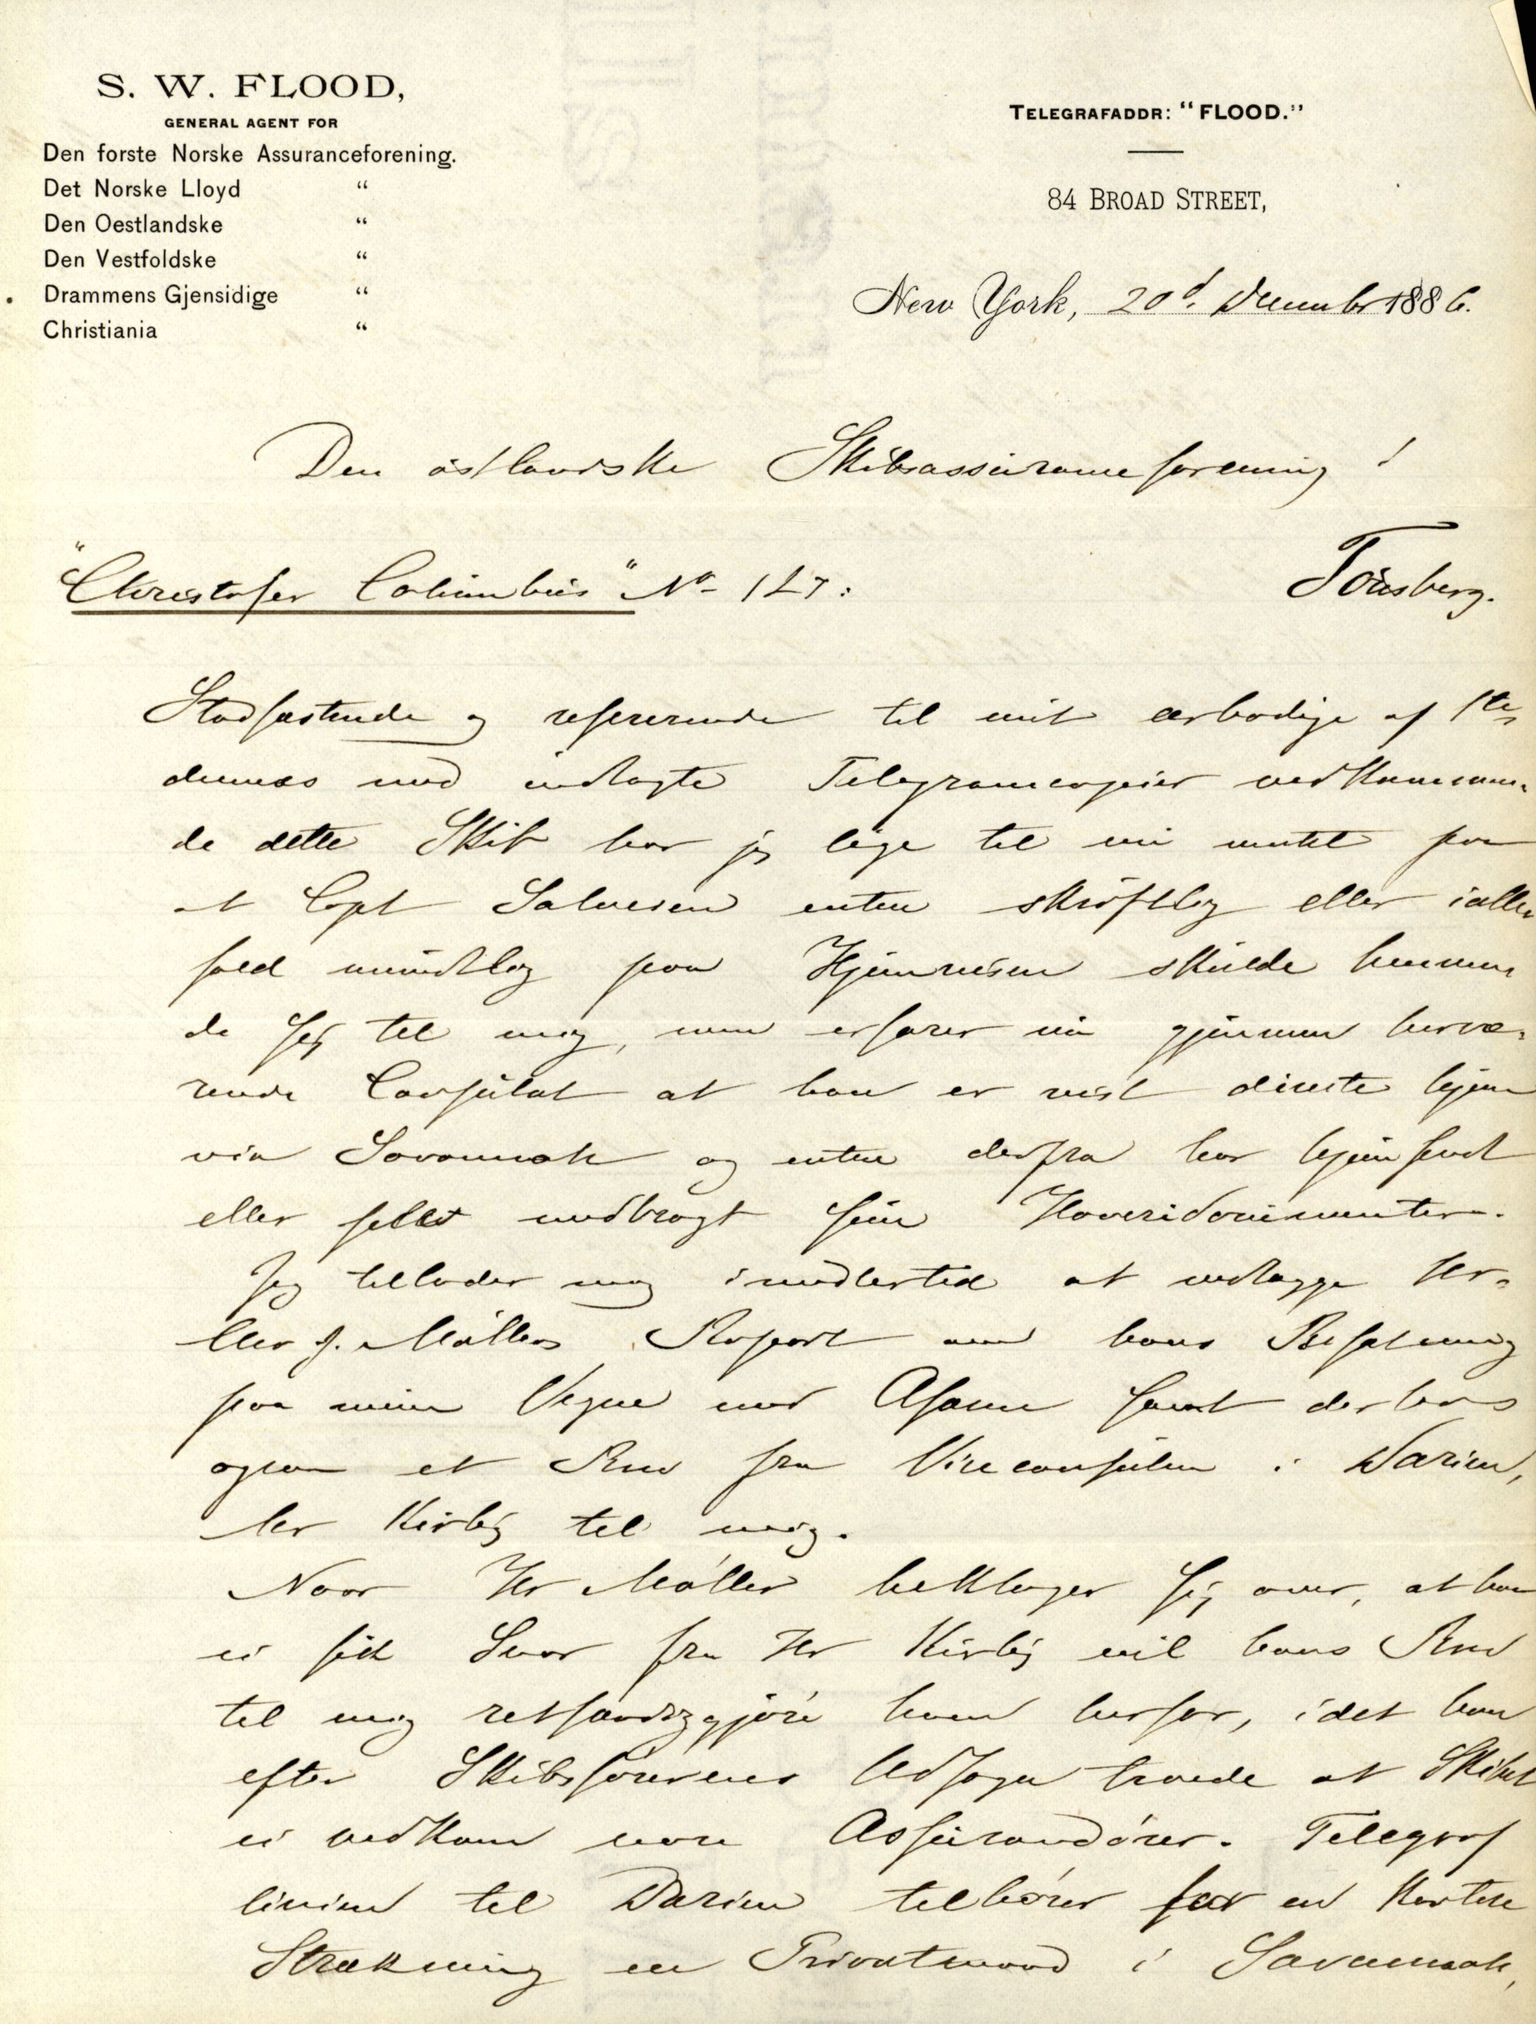 S. W. FLOOD,
GENERAL AGENT FOR
Den forste Norske Assuranceforening.
Det Norske Lloyd "
Den Oestlandske "
Den Vestfoldske "
Drammens Gjensidige "
Christiania "
TELEGRAFADDR: "FLOOD."
84 BROAD STREET,
New York, 20d. December 1886.
Den östlandske Skibsassuranceforening i
Tönsberg.
"Christofer Columbus" No 127:
Stadfæstende og refererende til mit ærbödige af 1ste
dennes med indlagte Telegramcopier vedkommen-
de dette Skib har jeg lige til nu ventet paa
at Capt Salvesen enten skriftlig eller iallen
fald mundtlig paa Hjemreisen skulde henven
de sig til mig, men erfarer nu gjennem hervæ-
rende Consulat at han er reist directe hjem
via Savannah og enten derfra har hjemsendt
eller selv medbragt sine Havaridocumenter.
Jeg tillader mig imidlertid at vedlægge Hr.
Chr J. Möllers Raport om hans Befatning
paa mine Vegne med Afsame samt derhos
ogsaa et Brev fra Viceconsulen i Darien,
Hr Kirby til mig.
Naar Hr Möller beklager sig over, at han
ei fik Svar fra Hr Kirby vil hans Brev
til mig retfærdiggjöre ham herfor, idet han
efter Skibsförerens Udsagn troede at Skibet
ei vedkom vore Assurandörer. Telegraf
linien til Darien tilhörer for en kortere
Strækning en Privatmand i Savannah,